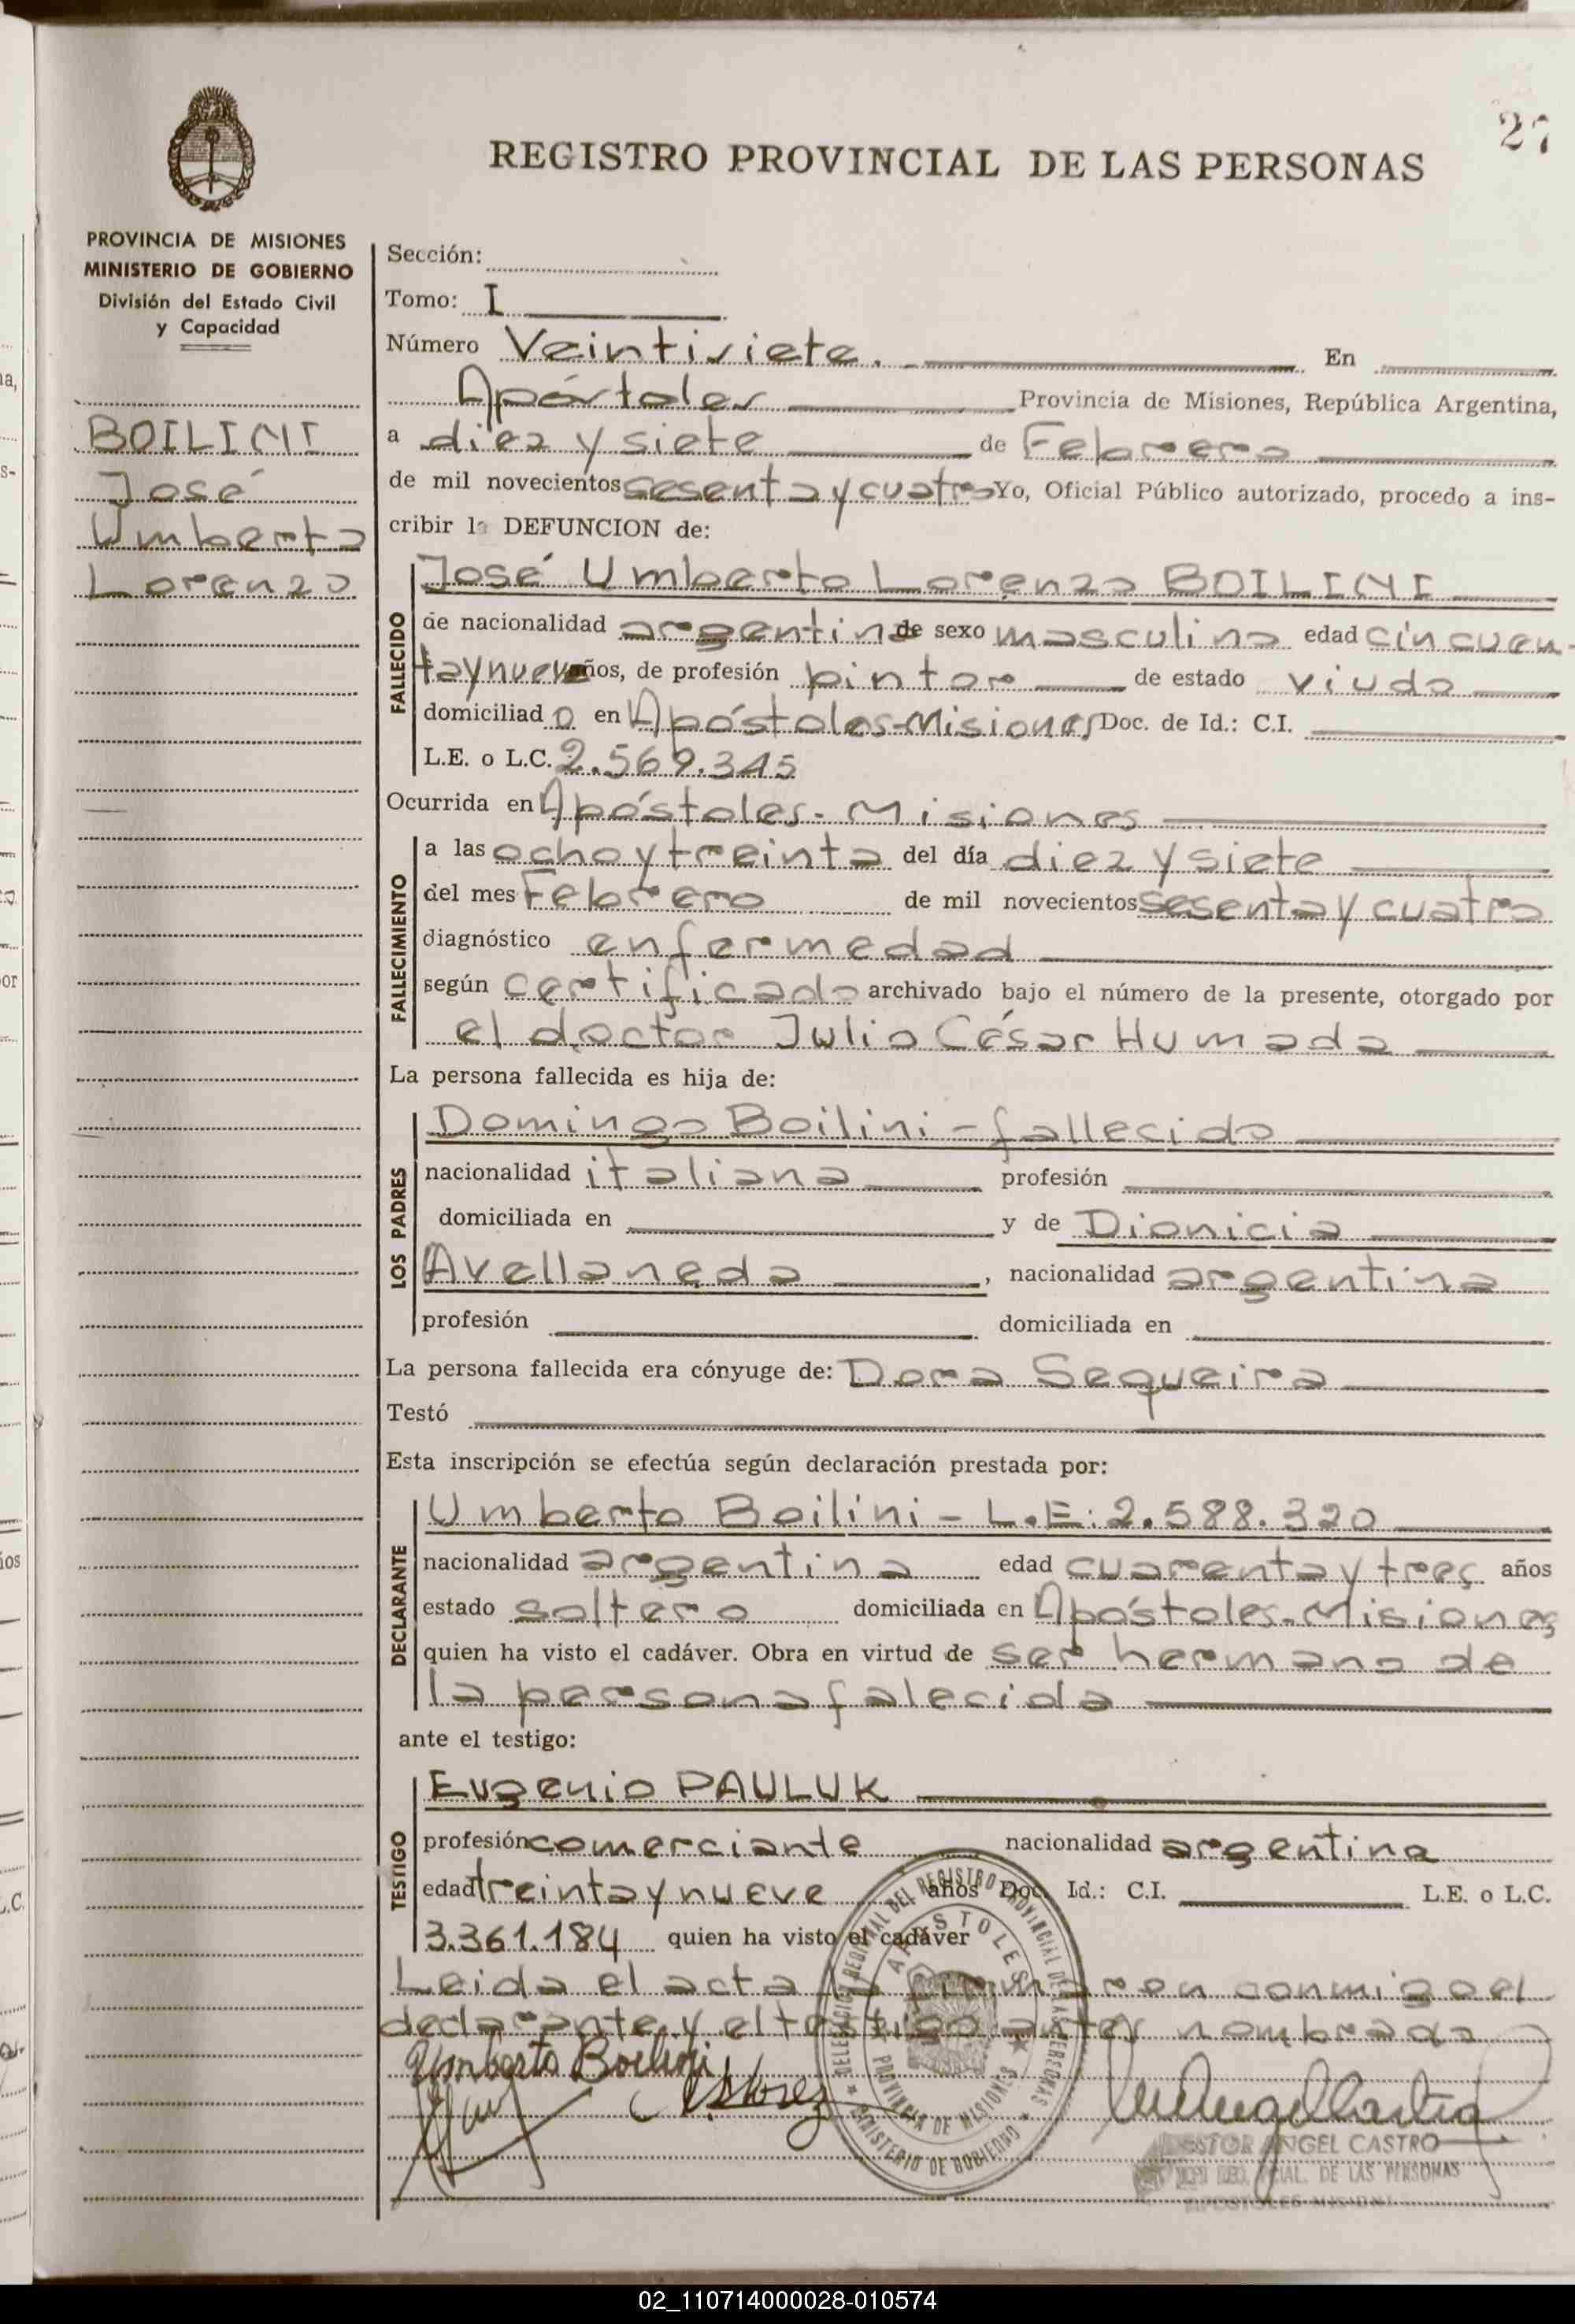 27
REGISTRO PROVINCIAL DE LAS PERSONAS
PROVINCIA DE MISIONES
MINISTERIO DE GOBIERNO
División del Estado Civil
y Capacidad
BOILINI
José
Umberto
Lorenzo
Sección:
Tomo: I
Número Veintisiete. En
Apóstoles Provincia de Misiones, República Argentina,
a diez y siete de Febrero
de mil novecientos sesenta y cuatro Yo, Oficial Público autorizado, procedo a ins-
cribir la DEFUNCION de:
FALLECIDO
José Umberto Lorenzo BOILINI
de nacionalidad argentina de sexo masculino edad cincuen-
taynueve años, de profesión pintor de estado viudo
domiciliado en Apóstoles-Misiones Doc. de Id.: C.I.
L.E. o L.C. 2.569.345
Ocurrida en Apóstoles-Misiones
FALLECIMIENTO
a las ocho y treinta del día diez y siete
del mes Febrero de mil novecientos sesenta y cuatro
diagnóstico enfermedad
según certificado archivado bajo el número de la presente, otorgado por
el doctor Julio César Humada
La persona fallecida es hija de:
LOS PADRES
Domingo Boilini - fallecido
nacionalidad italiana profesión
domiciliada en y de Dionicia
Avellaneda, nacionalidad argentina
profesión domiciliada en
La persona fallecida era cónyuge de: Dora Sequeira
Testó
Esta inscripción se efectúa según declaración prestada por:
DECLARANTE
Umberto Boilini - L.E: 2.588.320
nacionalidad argentina edad cuarenta y tres años
estado soltero domiciliada en Apóstoles-Misiones
quien ha visto el cadáver. Obra en virtud de ser hermano de
la persona falecida
ante el testigo:
TESTIGO
Eugenio PAULUK
profesión comerciante nacionalidad argentina
edad treinta y nueve años Doc. Id.: C.I. L.E. o L.C.
3.361.184 quien ha visto el cadáver
Leida el acta la firmaron conmigo el
declarante y el testigo antes nombrado
Umberto Boilini
DELEGACION REGIONAL DEL REGISTRO PROVINCIAL DE LAS PERSONAS
APOSTOLES
PROVINCIA DE MISIONES
MINISTERIO DE GOBIERNO
NESTOR ANGEL CASTRO
DE LAS PERSONAS
02_110714000028-010574